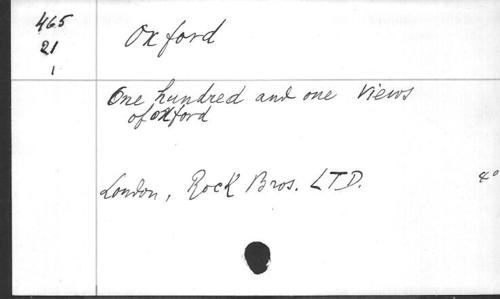 465
21
1
Oxford
One hundred and one views
of oxford
London, Rock Bros. LTD.
4°